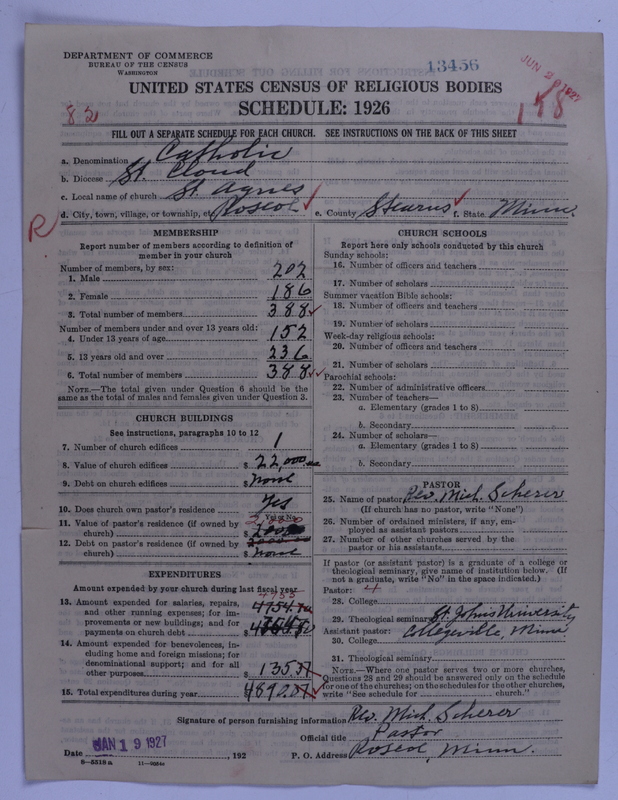 DEPARTMENT OF COMMERCE
BUREAU OF THE CENSUS
WASHINGTON
13456
JUN 2 1927
UNITED STATES CENSUS OF RELIGIOUS BODIES
SCHEDULE: 1926
82
FILL OUT A SEPARATE SCHEDULE FOR EACH CHURCH. SEE INSTRUCTIONS ON THE BACK OF THIS SHEET
a. Denomination Catholic
b. Diocese St. Cloud
c. Local name of church St. Agnes
d. City, town, village, or township, etc. Roscoe e. County Stearns f. State Minn.
R
MEMBERSHIP
Report number of members according to definition of
member in your church
Number of members, by sex:
1. Male 202
2. Female 186
3. Total number of members 388
Number of members under and over 13 years old:
4. Under 13 years of age 152
5. 13 years old and over 236
6. Total number of members 388
NOTE.—The total given under Question 6 should be the
same as the total of males and females given under Question 3.
CHURCH BUILDINGS
See instructions, paragraphs 10 to 12
7. Number of church edifices 1
8. Value of church edifices $ 22,000.00
9. Debt on church edifices $ None
10. Does church own pastor's residence Yes
Yes or No
11. Value of pastor's residence (if owned by
church) $
12. Debt on pastor's residence (if owned by
church) $ None
EXPENDITURES
Amount expended by your church during last fiscal year
4755
13. Amount expended for salaries, repairs,
and other running expenses; for im-
provements or new buildings; and for
payments on church debt $
14. Amount expended for benevolences, in-
cluding home and foreign missions; for
denominational support; and for all
other purposes $ 135.37
15. Total expenditures during year $
CHURCH SCHOOLS
Report here only schools conducted by this church
Sunday schools:
16. Number of officers and teachers
17. Number of scholars
Summer vacation Bible schools:
18. Number of officers and teachers
19. Number of scholars
Week-day religious schools:
20. Number of officers and teachers
21. Number of scholars
Parochial schools:
22. Number of administrative officers
23. Number of teachers—
a. Elementary (grades 1 to 8)
b. Secondary
24. Number of scholars—
a. Elementary (grades 1 to 8)
b. Secondary
PASTOR
25. Name of pastor Rev. Mich. Scherer
(If church has no pastor, write "None")
26. Number of ordained ministers, if any, em-
ployed as assistant pastors
27. Number of other churches served by the
pastor or his assistants
If pastor (or assistant pastor) is a graduate of a college or
theological seminary, give name of institution below. (If
not a graduate, write "No" in the space indicated.)
Pastor:
28. College
29. Theological seminary St. Johns University
Assistant pastor: Collegeville, Minn
30. College
31. Theological seminary
NOTE.—Where one pastor serves two or more churches,
Questions 28 and 29 should be answered only on the schedule
for one of the churches; on the schedules for the other churches,
write "See schedule for church."
Signature of person furnishing information Rev. Mich. Scherer
Official title Pastor
Date JAN 19 1927, 192 P. O. Address Roscoe, Minn.
8—5318a 11—9054